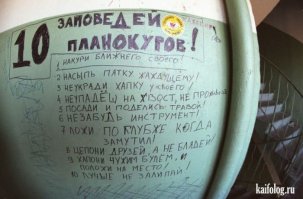 10 ЗАПОВЕДЕЙ
ПЛАНОКУРОВ!
1 НАКУРИ БЛИЖНЕГО СВОЕГО!
2 НАСЫПЬ ПЯТКУ ХАХАЩЕМУ!
3 НЕ УКРАДИ ХАПКУ ЧУЖОГО!
4 НЕ УПАДЁШ НА ХВОСТ, НЕ
5 ПОСАДИ И ПОДЕЛИСЬ ТРАВОЙ!
6 НЕ ЗАБУДЬ ИНСТРУМЕНТ!
7 ЛОХИ ПО ГЛУБЖЕ КОГДА
ЗАМУТИЛ!
8 ЦЕПОНИ ДРУЗЕЙ, А НЕ БЛЯДЕЙ!
9 ХАПОНИ ЧУЖИМ БУЛЕМ, И
ПОЛОЖИ НА МЕСТО!
10 ЛУЧШЕ НЕ ЗАЛИПАЙ!
kaifolog.ru